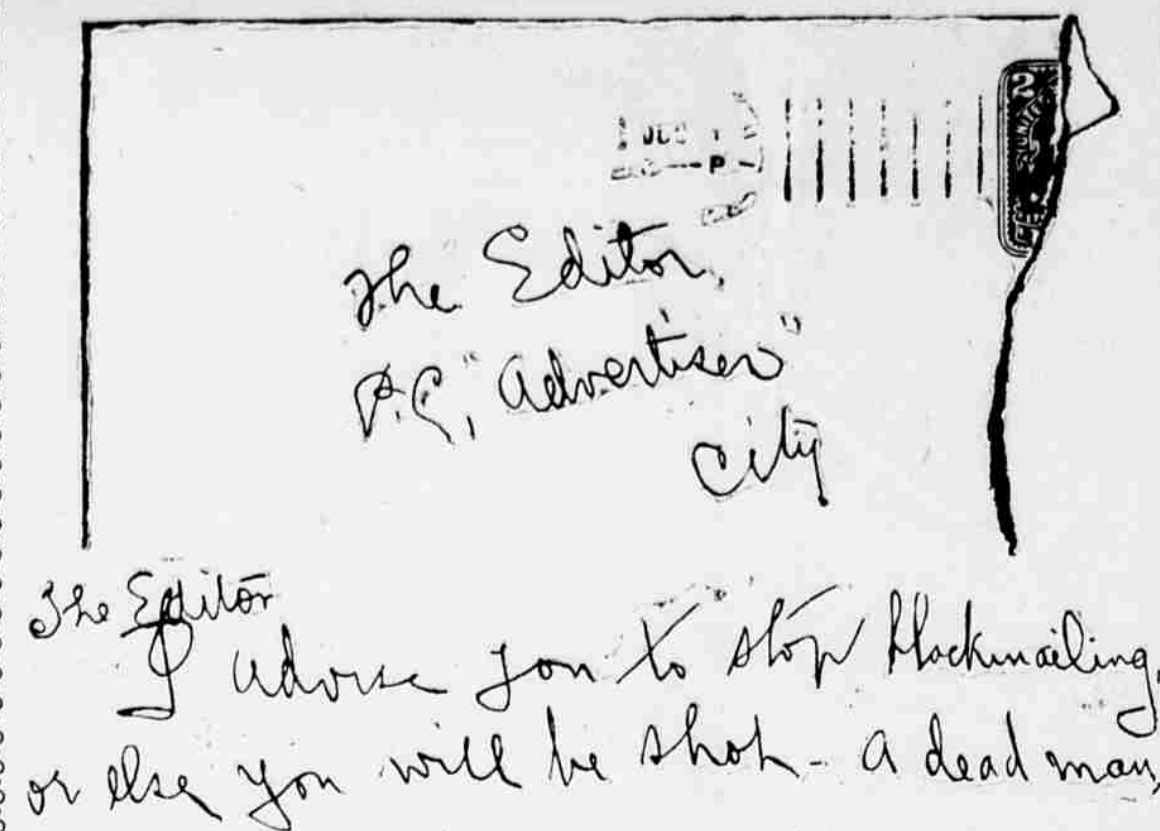 The Editor,
P.C, "Advertiser"
City
The Editor
I advise you to stop blackmailing,
or else you will be shot - a dead man,